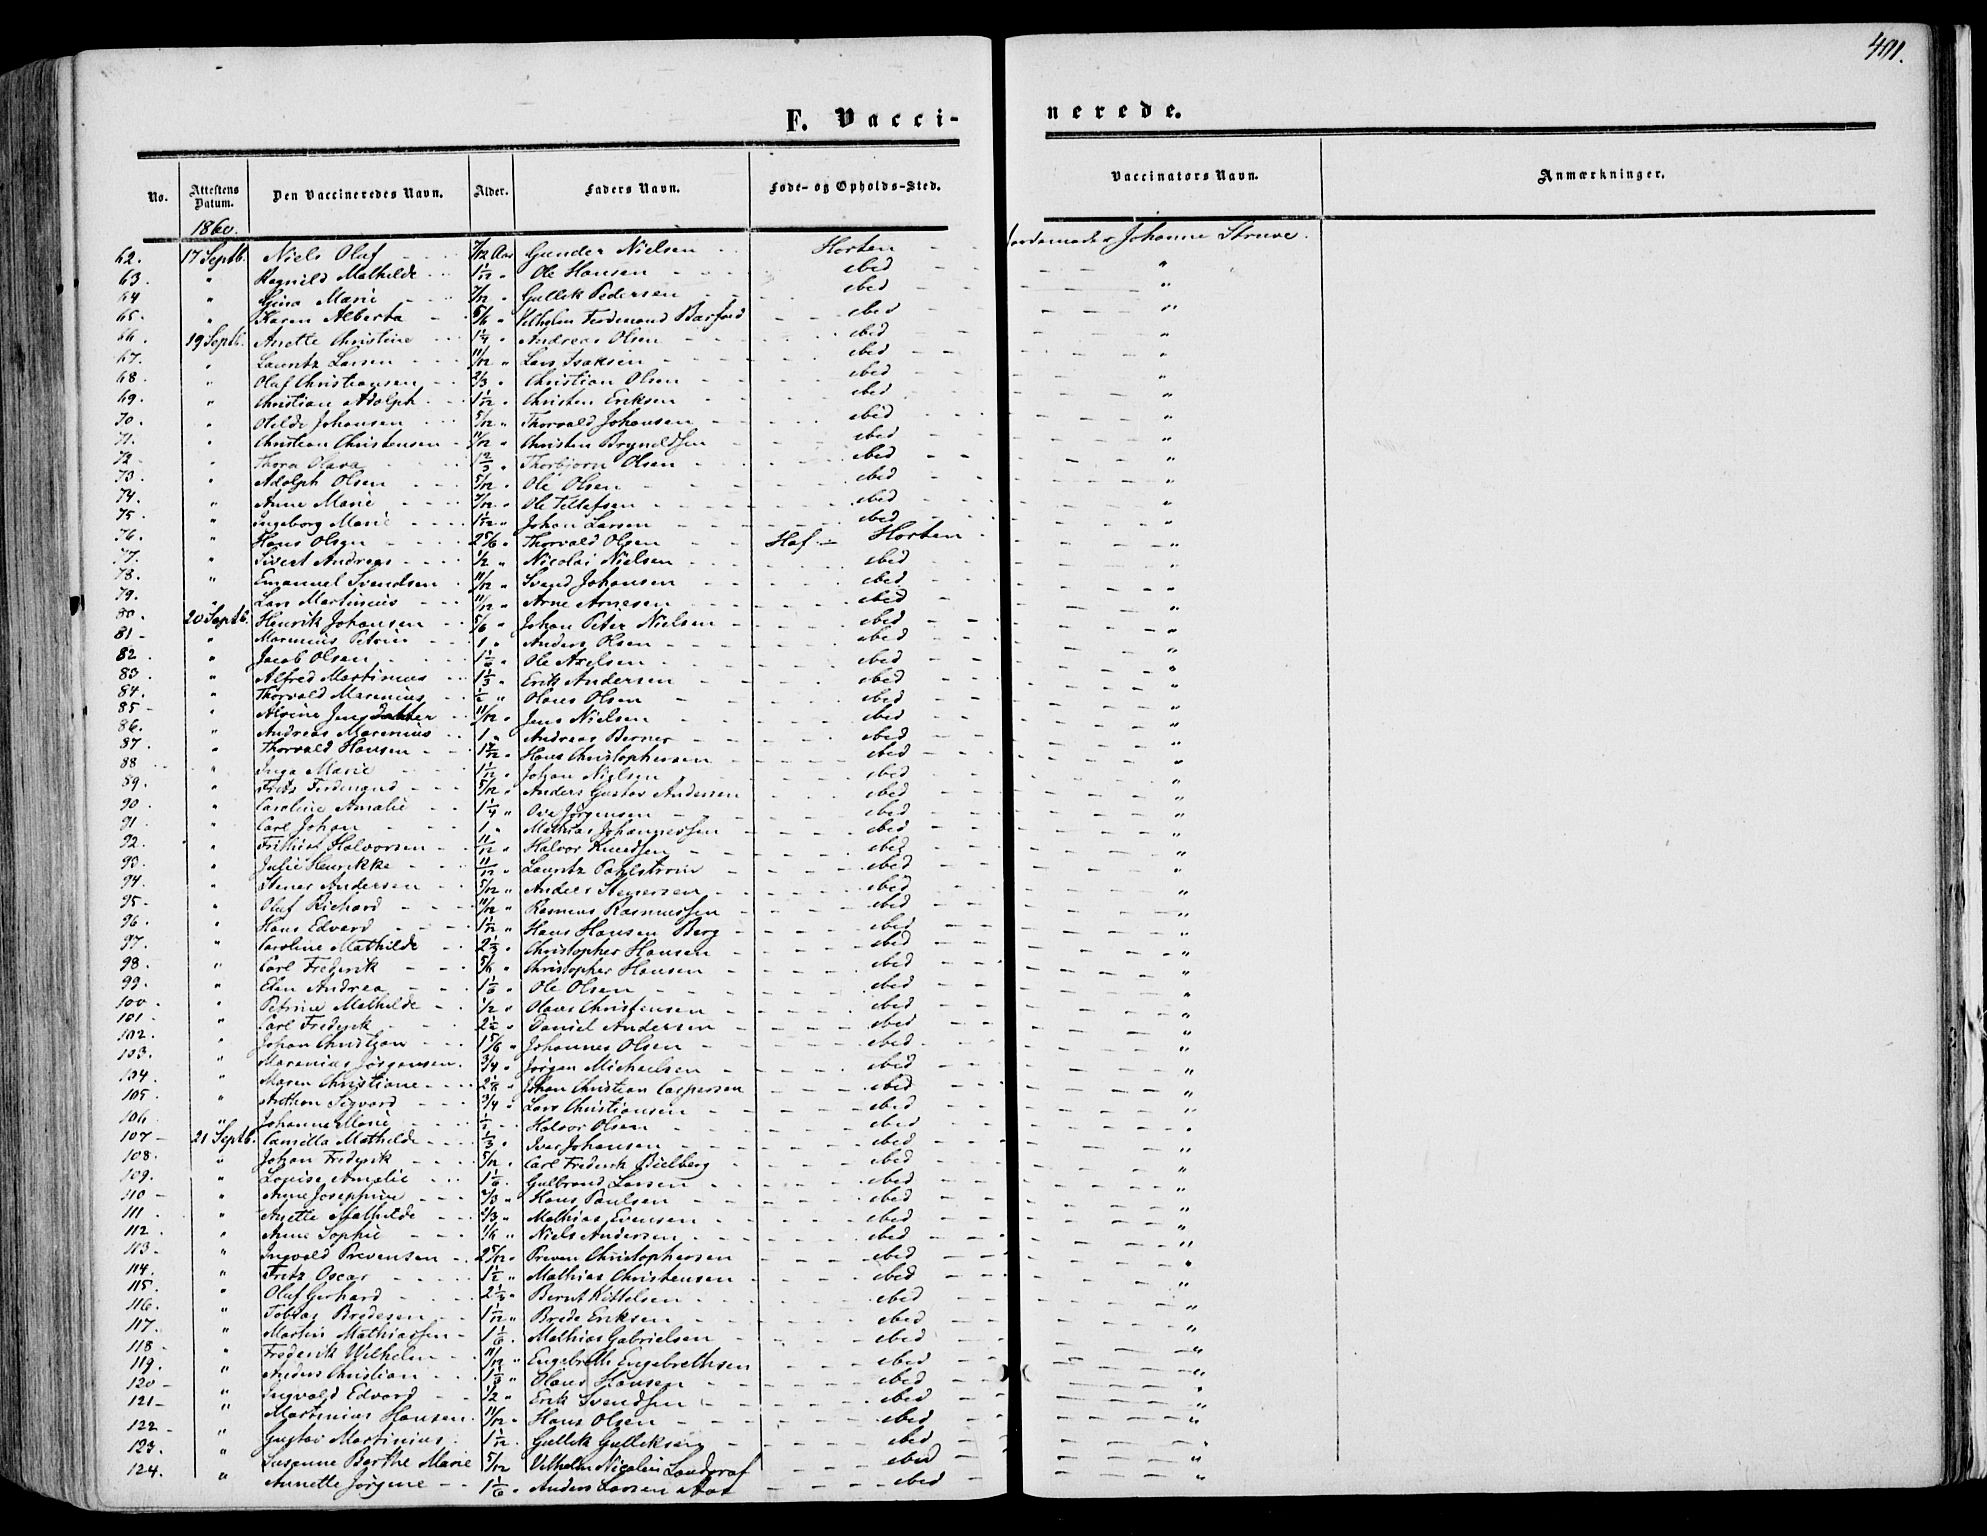 491.
F. Vacci- nerede.
No. Attestens Datum. Den Vaccineredes Navn. Alder. Faders Navn. Føde- og Opholds-Sted. Vaccinators Navn. Anmærkninger.
1860.
62. 17 Septb. Niels Olaf - - - 7/12 Aar Gunder Nielsen - - Horten - - Jordemoder Johanne Struve.
63. " Ragnild Mathilde - - 1 1/12 " Ole Hansen - - - ibid - - "
64 " Gina Marie - - 7/12 " Gullik Pedersen - - - ibid - - "
65. " Karen Alberta - - 5/6 " Vilhelm Ferdinand Barford - - ibid - - "
66. 19 Septb. Anette Christine - - 1 1/4 " Andreas Olsen - - - ibid - - "
67. " Lauritz Larsen - - 11/12 " Lars Isaksen - - - ibid - - "
68. " Olaf Christiansen - - 2/3 " Christian Olsen - - - ibid - - "
69. " Christian Adolph - - 1 1/12 " Christen Eriksen - - - ibid - - "
70. " Hilde Johansen - - 5/12 " Thorvald Johansen - - - ibid - - "
71. " Christian Christensen - 11/12 " Christen Bryneldsen - - ibid - - "
72 - " Thora Olava - - 1 2/3 " Thorbjørn Olsen - - - ibid - - "
73. " Adolph Olsen - - - 5/12 " Ole Olsen - - - ibid - - "
74. " Anne Marie - - - 7/12 " Ole Tellefsen - - - ibid - - "
75. " Ingeborg Marie - - - 1 1/12 " Johan Larsen - - - ibid - - "
76. " Hans Olsen - - - 2 5/6 " Thorvald Olsen - - Haf - Horten - "
77. " Sivert Andreas - - - 1/2 " Nicolai Nielsen - - - ibid - - "
78. " Emanuel Svendsen - 11/12 " Svend Johansen - - - ibid - - "
79. " Lars Martinius - - - 11/12 " Arne Arnesen - - - ibid - - "
80. 20 Septb. Henrik Johansen - - 5/6 " Johan Peter Nielsen - - ibid - - "
81 - " Marenius Petrin - - 1 " Anders Olsen - - - ibid - - "
82. " Jacob Olsen - - - 1 1/6 " Ole Axelsen - - - ibid - - "
83. " Alfred Martinius - - 1 1/3 " Erik Andersen - - - ibid - - "
84. " Thorvald Marenius - - " Olaus Olsen - - - ibid - - "
85 - " Alvine Jensdatter - - 11/12 " Jens Nielsen - - - ibid - - "
86. " Andreas Marenius - - 1 " Andreas Berner - - - ibid - - "
87. " Thorvald Hansen - - " Hans Christophersen - - ibid - - "
88 " Inga Marie - - 1 1/12 " Johan Nielsen - - - ibid - - "
89. " Frits Ferdinand - - - 5/12 " Anders Gustav Andersen - - ibid - - "
90 - " Caroline Amalie - - 1 1/4 " Ove Jørgensen - - - ibid - - "
91 - " Carl Johan - - - 1 " Mathias Johannessen - - ibid - - "
92. " Frithiof Halvorsen - - 11/12 " Halvor Knudsen - - - ibid - - "
93. " Julie Henrikke - - - 11/12 " Lauritz Dahlstrøm - - - ibid - - "
94. " Stener Andersen - - 5/12 " Anders Stenersen - - - ibid - - "
95 - " Olaf Richard - - - 11/12 " Rasmus Rasmussen - - ibid - - "
96. " Hans Edvard - - - 1 1/12 " Hans Hansen Berg - - - ibid - - "
97. " Caroline Mathilde - - 2 2/3 " Christopher Hansen - - ibid - - "
98. " Carl Frederik - - - 5/6 " Christopher Hansen - - ibid - - "
99. " Elen Andrea - - - 1 1/6 " Ole Olsen - - - ibid - - "
100. " Petrine Mathilde - - 1/2 " Olaus Christensen - - - ibid - - "
101 - " Carl Frederik - - - 2 1/2 " Daniel Andersen - - - ibid - - "
102. " Johan Christian - - - 1 5/6 " Johannes Olsen - - - ibid - - "
103. " Marenius Jørgensen. 3/4 " Jørgen Michaelsen - - - ibid - - "
104. " Maren Christiane - - - 2 1/6 " Johan Christian Caspersen - - ibid - - "
105. " Anthon Sigvard - - - 3/4 " Lars Christiansen - - - ibid - - "
106. " Johanne Marie - - - Halvor Olsen - - - ibid - - "
107 - 21 Septb. Camilla Mathilde - - - 1/3 " Iver Johansen - - - ibid - - "
108. " Johan Frederik - - - 5/12 " Carl Frederik Bielberg - - ibid - - "
109. " Louise Amalie - - - 1 1/6 " Gulbrand Larsen - - - ibid - - "
110 - " Anne Josephine - - - 2/3 " Hans Paulsen - - - ibid - - "
111. " Anette Mathilde - - - 2/3 " Mathias Evensen - - - ibid - - "
112. " Anne Sophie - - - 1/6 " Niels Andersen - - - ibid - - "
113 - " Ingvald Prevensen - - 2 5/12 " Preven Christophersen - - ibid - - "
114. " Fritz Oscar - - - 1 1/2 " Mathias Christensen - - ibid - - "
115. " Olaf Gerhard - - - 2 1/3 " Bernt Kittelsen - - - ibid - - "
116. " Tobias Bredesen - - - 1 1/12 " Brede Eriksen - - - ibid - - "
117. " Martin Mathiassen - 1 1/6 " Mathias Gabrielsen - - ibid - - "
118 - " Frederik Vilhelm - - 11/12 " Engebreth Engebrethsen - - ibid - - "
119. " Anders Christian - - - 1 1/3 " Olaus Hansen - - - ibid - - "
120 - " Ingvald Edvard - - 1/2 " Erik Svendsen - - - ibid - - "
121 - " Martinius Hansen. 11/12 " Hans Olsen - - - ibid - - "
122 - " Gustav Martinius. 1 1/12 " Gullik Gulliksen - - - ibid - - "
123. " Susanne Berthe Marie 5/12 Vilhelm Nicolai Landgraf - - ibid - - "
124. " Annette Jørgine - - 1 1/6 " Anders Larsen Aas - - - ibid - - "